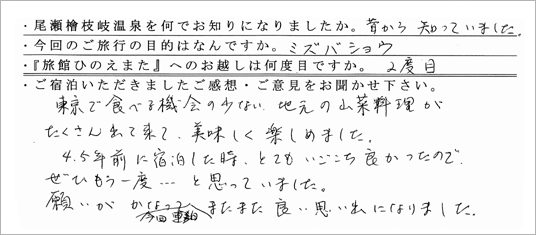 ・尾瀬檜枝岐温泉を何でお知りになりましたか。昔から 知っていました。
・今回のご旅行の目的はなんですか。ミズバショウ
・『旅館ひのえまた』へのお越しは何度目ですか。2度目
・ご宿泊いただきましたご感想・ご意見をお聞かせ下さい。
東京で食べる機会の少ない 地元の山菜料理が
たくさん出て来て、美味しく楽しめました。
4.5年前に宿泊した時、とてもいごこち良かったので、
ぜひもう一度… と思っていました。
願いが かなって またまた 良い思い出になりました。
今回